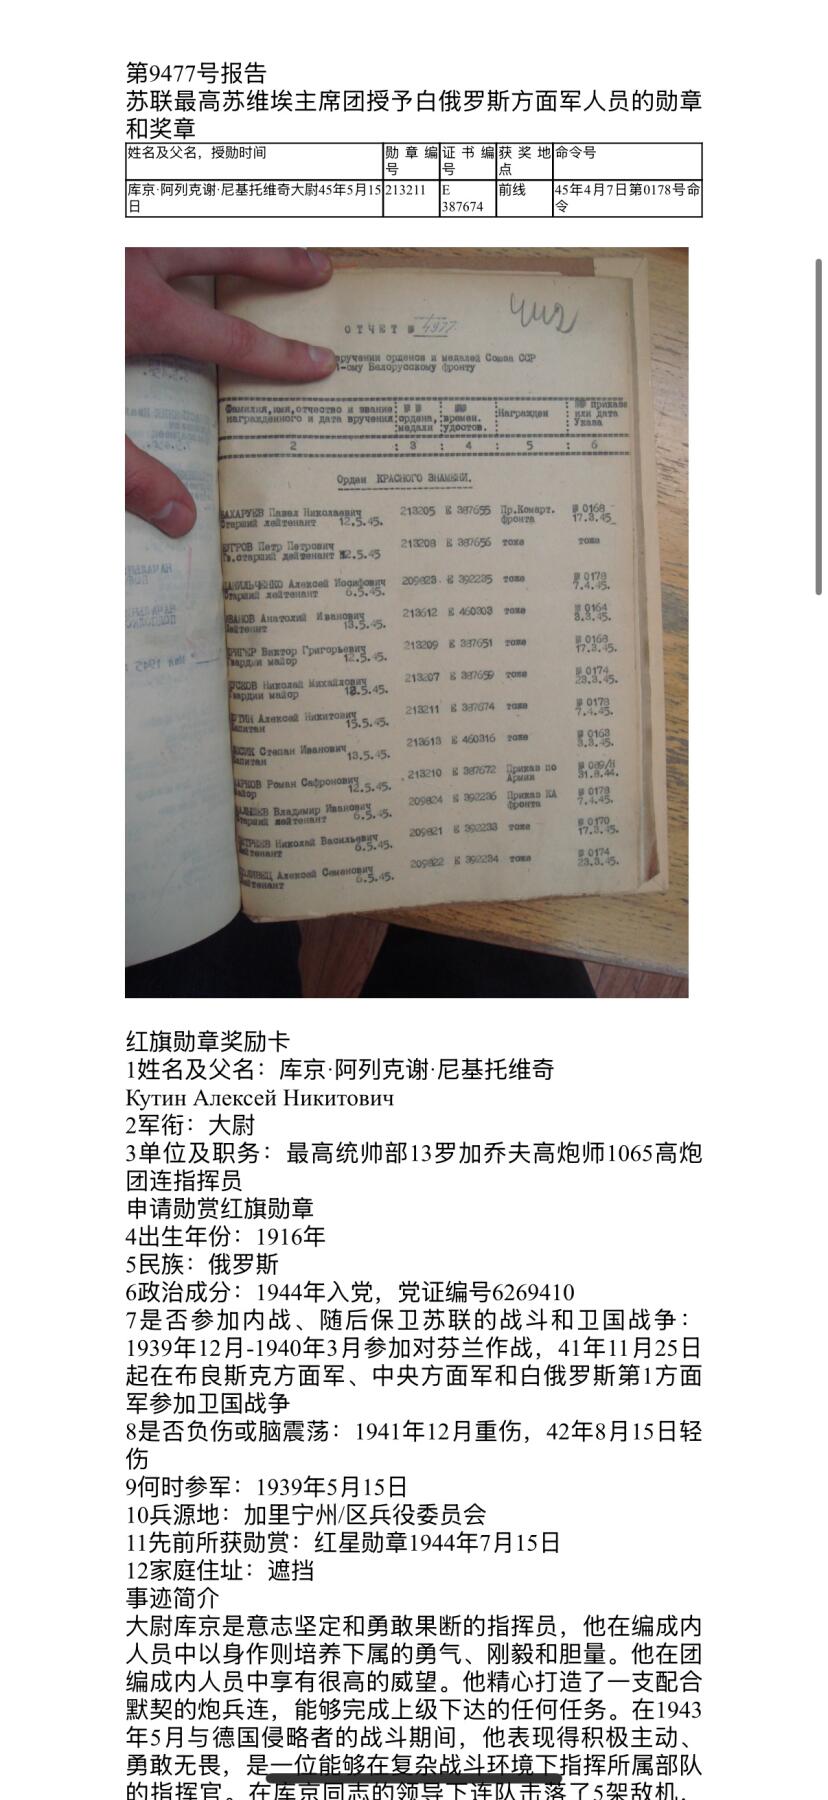 第9477号报告
苏联最高苏维埃主席团授予白俄罗斯方面军人员的勋章
和奖章
姓名及父名，授勋时间 勋章编号 证书编号 获奖地点 命令号
库京·阿列克谢·尼基托维奇大尉45年5月15日 213211 E 387674 前线 45年4月7日第0178号命令
ОТЧЕТ №
вручении орденов и медалей Союза ССР
1-ому Белорусскому фронту
Фамилия,имя,отчество и звание награжденного и дата вручения №№ ордена, медали №№ времен. удостов. Награжден №№ приказа или дата Указа
2 3 4 5 6
Орден КРАСНОГО ЗНАМЕНИ.
Павел Николаевич 213205 Е 387655 Пр.Комарт. № 0168
Старший лейтенант 12.5.45. фронта 17.3.45.
Петр Петрович 213208 Е 387656 тоже тоже
Гв.старший лейтенант 12.5.45
ДАНИЛЬЧЕНКО Алексей Иосифович 209823 Е 392235 тоже № 0178
Старший лейтенант 6.5.45. 7.4.45.
ИВАНОВ Анатолий Иванович 213612 Е 460303 тоже № 0164
13.5.45. 3.3.45.
Виктор Григорьевич 213209 Е 387651 тоже № 0168
Гвардии майор 12.5.45. 17.3.45.
Николай Михайлович 213207 Е 387659 тоже № 0174
Гвардии майор 23.3.45.
КУТИН Алексей Никитович 213211 Е 387674 тоже № 0178
Капитан 15.5.45. 7.4.45.
Степан Иванович 213613 Е 460316 тоже № 0163
Капитан 13.5.45. 3.3.45.
Роман Сафронович 213210 Е 387672 Приказ по № 089/Н
12.5.45. Армии 31.8.44.
Владимир Иванович 209824 Е 392236 Приказ КА № 0178
Старший лейтенант 6.5.45. фронта 7.4.45.
Николай Васильевич 209821 Е 392233 тоже № 0170
6.5.45. 17.3.45.
Алексей Семенович 209822 Е 392234 тоже № 0174
6.5.45. 23.3.45.
红旗勋章奖励卡
1姓名及父名：库京·阿列克谢·尼基托维奇
Кутин Алексей Никитович
2军衔：大尉
3单位及职务：最高统帅部13罗加乔夫高炮师1065高炮
团连指挥员
申请勋赏红旗勋章
4出生年份：1916年
5民族：俄罗斯
6政治成分：1944年入党，党证编号6269410
7是否参加内战、随后保卫苏联的战斗和卫国战争：
1939年12月-1940年3月参加对芬兰作战，41年11月25日
起在布良斯克方面军、中央方面军和白俄罗斯第1方面
军参加卫国战争
8是否负伤或脑震荡：1941年12月重伤，42年8月15日轻
伤
9何时参军：1939年5月15日
10兵源地：加里宁州/区兵役委员会
11先前所获勋赏：红星勋章1944年7月15日
12家庭住址：遮挡
事迹简介
大尉库京是意志坚定和勇敢果断的指挥员，他在编成内
人员中以身作则培养下属的勇气、刚毅和胆量。他在团
编成内人员中享有很高的威望。他精心打造了一支配合
默契的炮兵连，能够完成上级下达的任何任务。在1943
年5月与德国侵略者的战斗期间，他表现得积极主动、
勇敢无畏，是一位能够在复杂战斗环境下指挥所属部队
的指挥官。在库京同志的领导下连队击落了5架敌机，